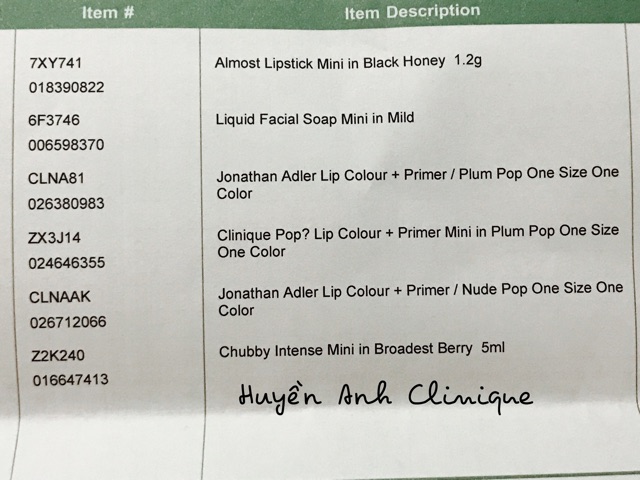 Item # Item Description
7XY741 Almost Lipstick Mini in Black Honey 1.2g
018390822
6F3746 Liquid Facial Soap Mini in Mild
006598370
CLNA81 Jonathan Adler Lip Colour + Primer / Plum Pop One Size One
026380983 Color
ZX3J14 Clinique Pop? Lip Colour + Primer Mini in Plum Pop One Size
024646355 One Color
CLNAAK Jonathan Adler Lip Colour + Primer / Nude Pop One Size One
026712066 Color
Z2K240 Chubby Intense Mini in Broadest Berry 5ml
016647413
Huyền Anh Clinique